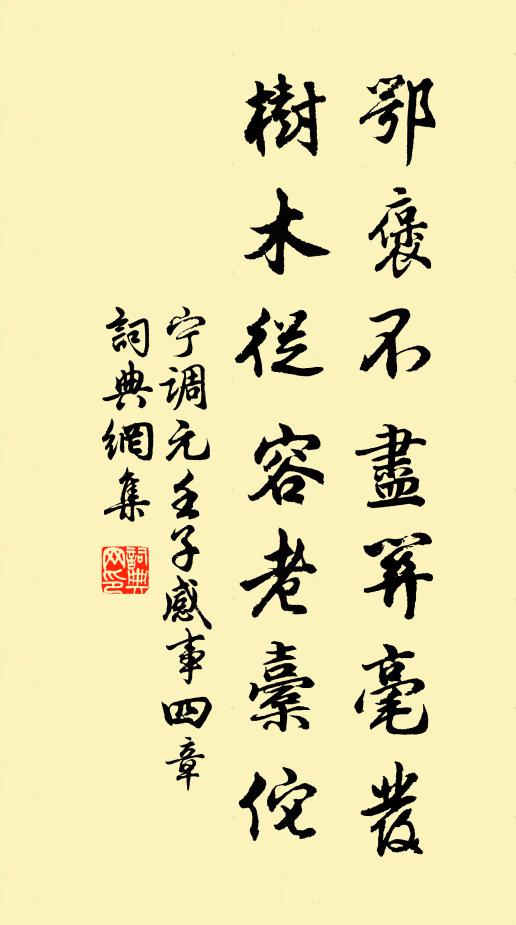 鄂褒不盡笄毫發
樹木從容老橐佗
宁調元壬子感事四章
詞典網集
詞典网印